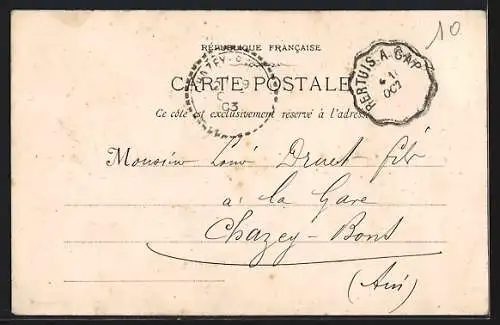 10
RÉPUBLIQUE FRANÇAISE
CARTE POSTALE
Ce côté est exclusivement réservé à l'adresse
PERTUIS A GAP
OCT
CHAZEY-B
03
Monsieur Louis Druet fils
à la Gare
Chazey-Bons
(Ain)